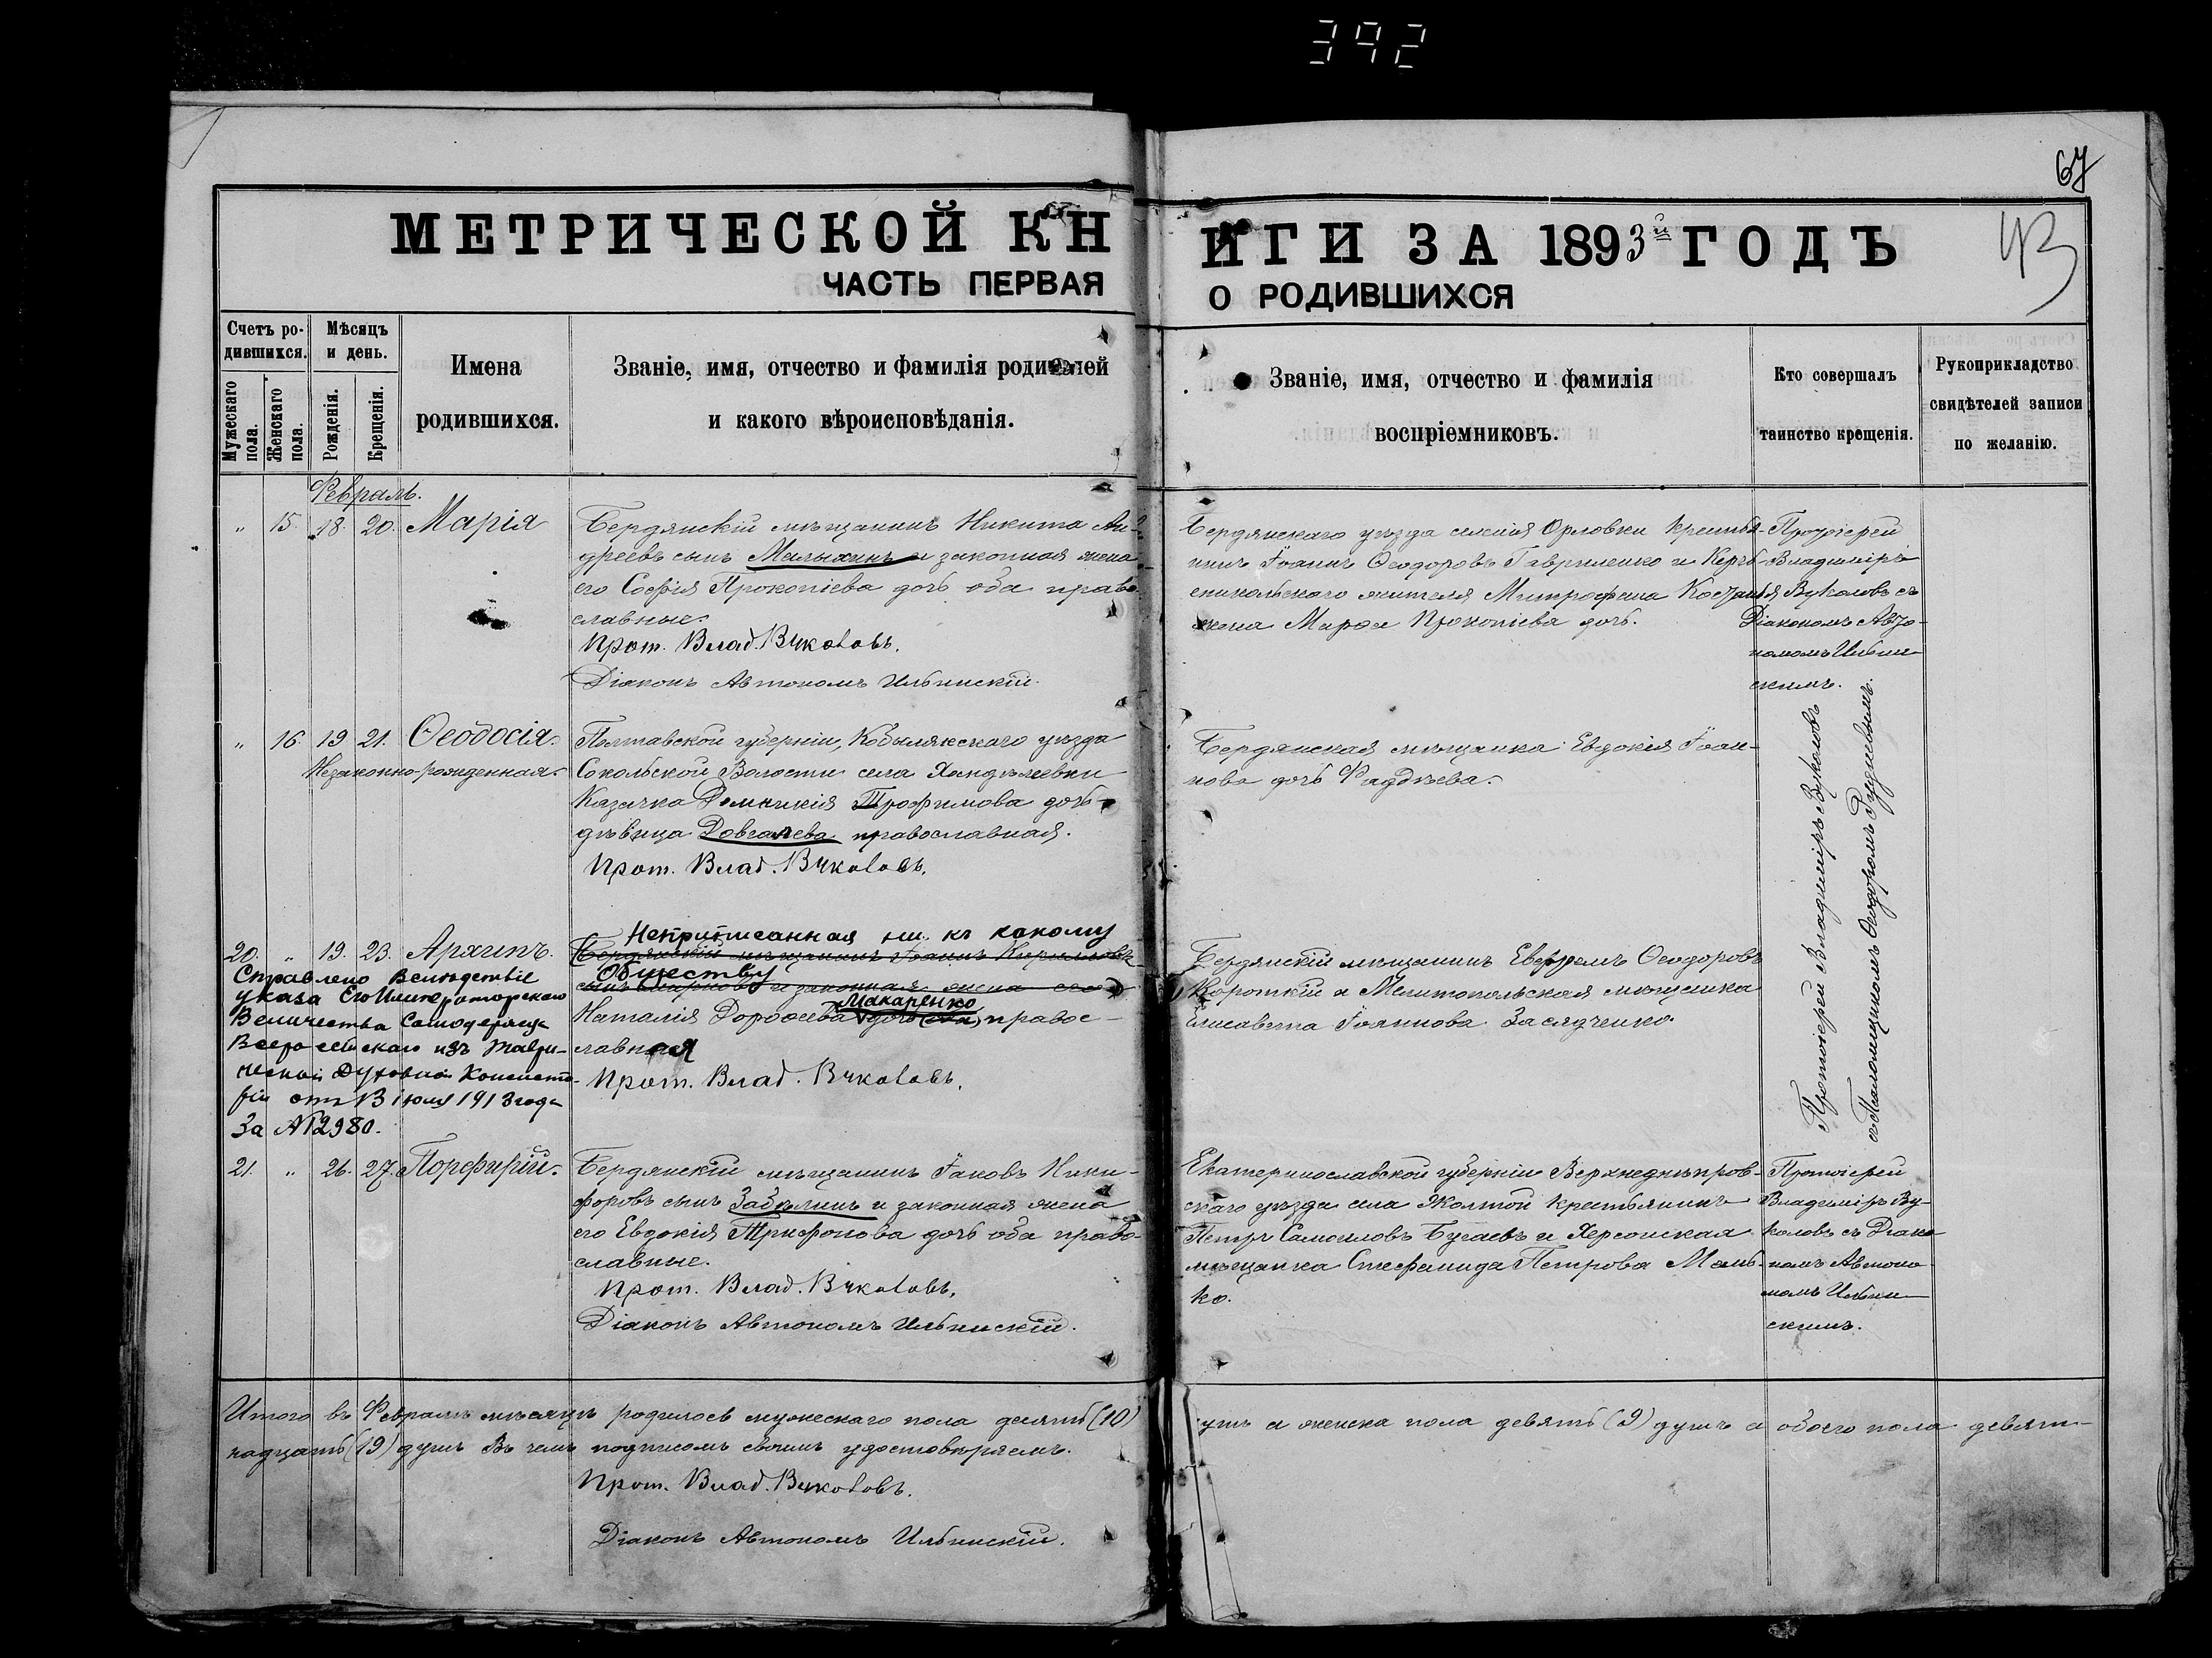 392
67
43
МЕТРИЧЕСКОЙ КНИГИ ЗА 1893й ГОДЪ
ЧАСТЬ ПЕРВАЯ О РОДИВШИХСЯ
Счетъ ро-
дившихся.
Мужескаго пола.
Женскаго пола.
Мѣсяцъ
и день.
Рожденія.
Крещенія.
Имена
родившихся.
Званіе, имя, отчество и фамилія родителей
и какого вѣроисповѣданія.
Званіе, имя, отчество и фамилія
воспріемниковъ.
Кто совершалъ
таинство крещенія.
Рукоприкладство
свидѣтелей записи
по желанію.
Февраль.
" 15. 18. 20. Марія
Бердянскій мѣщанинъ Никита Ан-
дреевъ сынъ Малыхинъ и законная жена
его Софія Прокопіева дочь оба право-
славные.
Прот. Влад. Вуколовъ.
Діаконъ Автономъ Ильинскій.
Бердянскаго уѣзда селенія Орловки крестья-
нинъ Іоаннъ Ѳеодоровъ Гавриленко и Керчь-
еникольскаго жителя Митрофана
жена Марѳа Прокопіева дочь.
Протоіерей
Владиміръ
Вуколовъ съ
Діакономъ Авто-
номомъ Ильин-
скимъ.
" 16. 19 21. Ѳеодосія.
Незаконно-рожденная.
Полтавской губерніи, Кобылякскаго уѣзда
Сокольской Волости села Хандалеевки
Казачка Домникія Трофимова дочь
дѣвица Довгалева православная.
Прот. Влад. Вуколовъ.
Бердянская мѣщанка Евдокія Іоан-
нова дочь Фаддѣева.
20. " 19. 23. Архипъ.
Справлено вслѣдствіе
указа Его Императорскаго
Величества Самодержца
Всероссійскаго изъ Таври-
ческой Духовной Консисто-
ріи отъ 13 іюля 1913 года
За №12980.
Неприписанная ни къ какому
Бердянскій мѣщанинъ Іоаннъ Кирилловъ
Обществу
сынъ Марковъ и законная жена его
Макаренко
Наталія Дороѳеева дочь (оба) правос-
лавная
Прот. Влад. Вуколовъ.
Бердянскій мѣщанинъ Евфремъ Ѳеодоровъ
Короткій и Мелитопольская мѣщанка
Елисавета Іоаннова Засядченко.
Протоіерей Владиміръ Вуколовъ
съ Псаломщикомъ Ѳеодоромъ Рудневымъ.
21. " 26. 27. Порфирій.
Бердянскій мѣщанинъ Іаковъ Ники-
форовъ сынъ Забѣлинъ и законная жена
его Евдокія Трифонова дочь оба право-
славные.
Прот. Влад. Вуколовъ.
Діаконъ Автономъ Ильинскій.
Екатеринославской губерніи Верхнеднѣпров-
скаго уѣзда села Жолтой крестьянинъ
Петръ Самоиловъ Бугаевъ и Херсонская
мѣщанка Стефанида Петрова Мань-
ко.
Протоіерей
Владиміръ Ву-
коловъ съ Діако-
номъ Автоно-
момъ Ильин-
скимъ.
Итого въ Февралѣ мѣсяцѣ родилось мужескаго пола десять (10) душъ а женска пола девять (9) душъ а обоего пола девят-
надцать (19) душъ Въ чемъ подписомъ своимъ удостовѣряемъ.
Прот. Влад. Вуколовъ.
Діаконъ Автономъ Ильинскій.